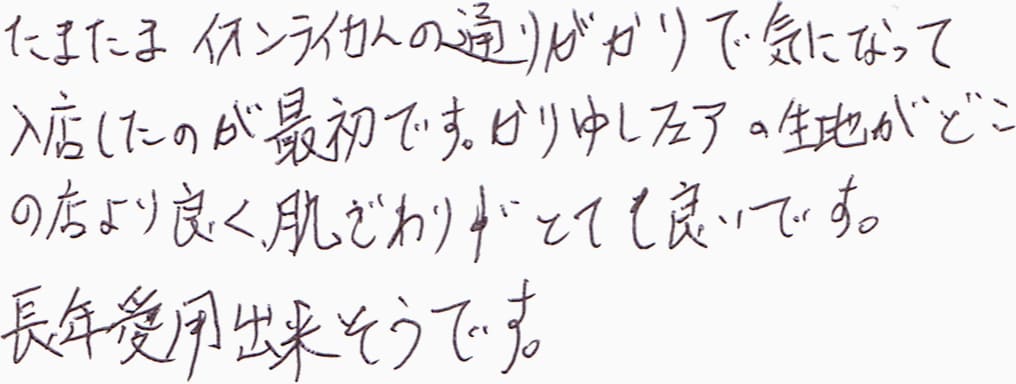 たまたま イオンライカムの通りがかりで気になって
入店したのが最初です。かりゆしウェアの生地がどこ
の店より良く、肌ざわりがとても良いです。
長年愛用出来そうです。